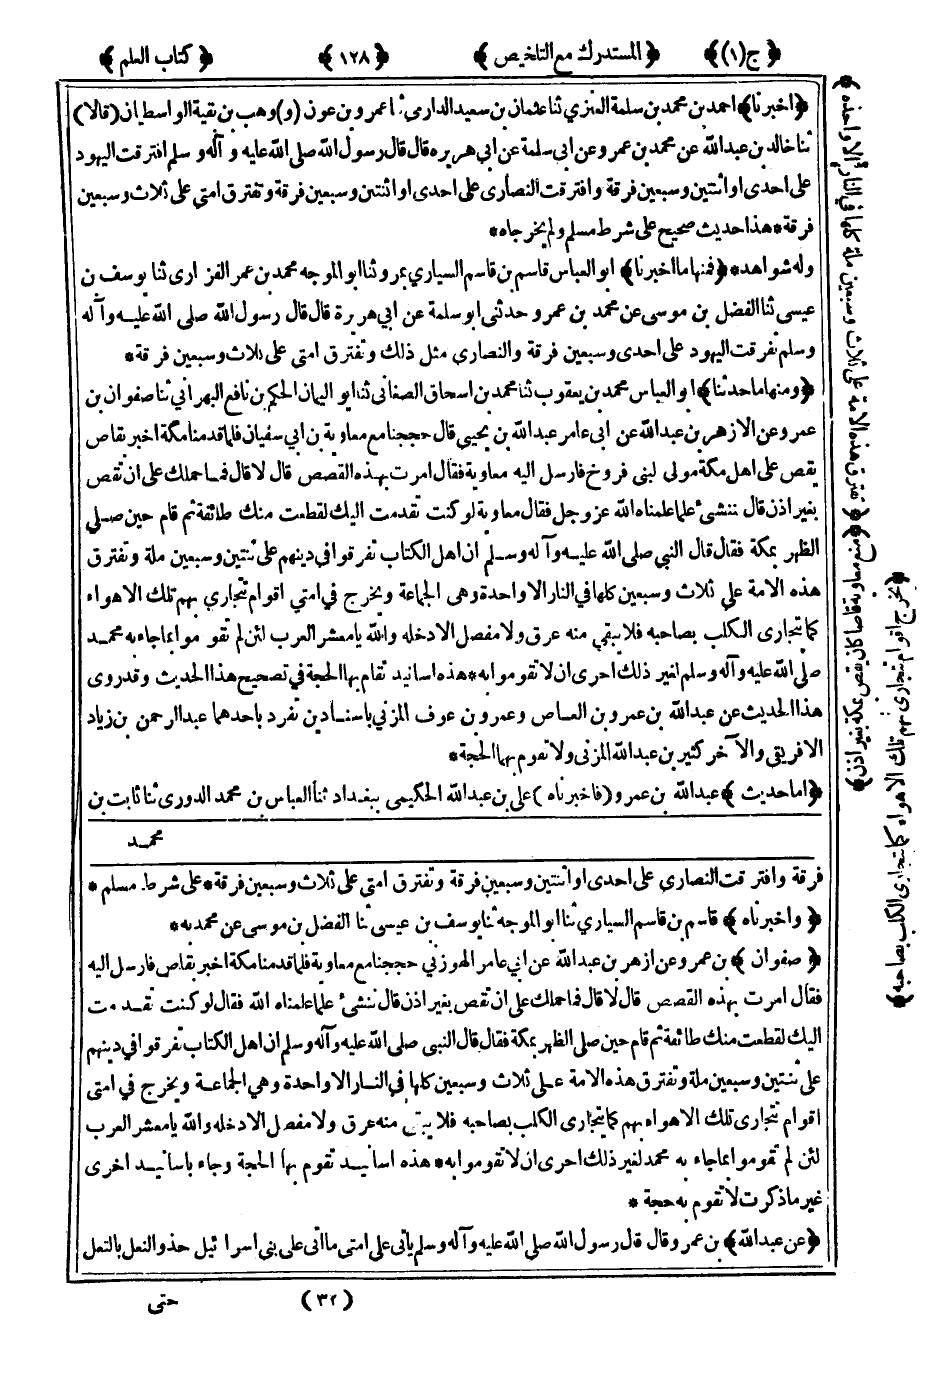 ﴿ج(١)﴾ ﴿المستدرك مع التلخيص﴾ ﴿١٢٨﴾ ﴿كتاب العلم﴾
﴿اخبرنا﴾ احمد بن محمد بن سلمة العنزي ثنا عثمان بن سعيد الدارمى ثنا عمرو بن عون (و) وهب بن بقية الواسطيان (قالا)
ثنا خالد بن عبدالله عن محمد بن عمرو عن ابى سلمة عن ابى هريره قال قال رسول الله صلى الله عليه و آله و سلم افترقت اليهود
على احدى او اثنتين وسبعين فرقة وافترقت النصارى على احدى او اثنتين وسبعين فرقة وتفترق امتى على ثلاث وسبعين
فرقة * هذا حديث صحيح على شرط مسلم ولم يخرجاه *
وله شواهد * ﴿فمنها ما اخبرنا﴾ ابو العباس قاسم بن قاسم السياري بمرو ثنا ابو الموجه محمد بن عمر الفزارى ثنا يوسف بن
عيسى ثنا الفضل بن موسى عن محمد بن عمرو حدثنى ابو سلمة عن ابي هريرة قال قال رسول الله صلى الله عليه وآله
وسلم تفرقت اليهود على احدى وسبعين فرقة والنصاري مثل ذلك وتفترق امتى على ثلاث وسبعين فرقة *
﴿ومنها ما حدثنا﴾ ابو العباس محمد بن يعقوب ثنا محمد بن اسحاق الصغانى ثنا ابو اليمان الحكم بن نافع البهرانى ثنا صفوان بن
عمرو عن الازهر بن عبدالله عن ابى عامر عبدالله بن يحيى قال حججنا مع معاوية بن ابي سفيان فلما قدمنا مكة اخبر بقاص
يقص على اهل مكة مولى لبنى فروخ فارسل اليه معاوية فقال امرت بهذه القصص قال لا قال فما حملك على ان تقص
بغير اذن قال ننشئ علما علمناه الله عزوجل فقال معاوية لو كنت تقدمت اليك لقطعت منك طائفة ثم قام حين صلى
الظهر بمكة فقال قال النبي صلى الله عليه وآله وسلم ان اهل الكتاب تفرقوا في دينهم على ثنتين وسبعين ملة وتفترق
هذه الامة على ثلاث وسبعين كلها في النار الا واحدة وهى الجماعة ويخرج في امتي اقوام تتجاري بهم تلك الاهواء
كما يتجارى الكلب بصاحبه فلا يبقى منه عرق ولا مفصل الا دخله والله يا معشر العرب لئن لم تقوموا بما جاء به محمد
صلى الله عليه وآله وسلم لغير ذلك احرى ان لا تقوموا به * هذه اسانيد تقام بها الحجة في تصحيح هذا الحديث وقد روى
هذا الحديث عن عبدالله بن عمرو بن العاص وعمرو بن عوف المزني باسنادين تفرد باحدهما عبدالرحمن بن زياد
الافريقي والآخر كثير بن عبدالله المزنى ولا تقوم بهما الحجة *
﴿اما حديث﴾ عبدالله بن عمرو (فاخبرناه) علي بن عبدالله الحكيمى ببغداد ثنا العباس بن محمد الدورى ثنا ثابت بن
محمد
فرقة وافترقت النصاري على احدى او اثنتين وسبعين فرقة وتفترق امتي على ثلاث وسبعين فرقة * على شرط مسلم *
﴿واخبرناه﴾ قاسم بن قاسم السياري ثنا ابو الموجه ثنا يوسف بن عيسى ثنا الفضل بن موسى عن محمد به *
﴿صفوان﴾ بن عمرو عن ازهر بن عبدالله عن ابي عامر الهوزني حججنا مع معاوية فلما قدمنا مكة اخبر بقاص فارسل اليه
فقال امرت بهذه القصص قال لا قال فما حملك على ان تقص بغير اذن قال ننشئ علما علمناه الله فقال لو كنت تقدمت
اليك لقطعت منك طائفة ثم قام حين صلى الظهر بمكة فقال قال النبى صلى الله عليه وآله وسلم ان اهل الكتاب تفرقوا في دينهم
على ثنتين وسبعين ملة وتفترق هذه الامة على ثلاث وسبعين كلها في النار الا واحدة وهي الجماعة ويخرج في امتى
اقوام تتجارى تلك الاهواء بهم كما يتجارى الكلب بصاحبه فلا يبقى منه عرق ولا مفصل الا دخله والله يا معشر العرب
لئن لم تقوموا بما جاء به محمد لغير ذلك احرى ان لا تقوموا به * هذه اسانيد تقوم بها الحجة وجاء باسانيد اخرى
غير ما ذكرت لا تقوم به حجة *
﴿عن عبدالله﴾ بن عمرو قال قال رسول الله صلى الله عليه وآله وسلم يأتى على امتى ما اتى على بنى اسرائيل حذو النعل بالنعل
(٣٢) حتى
﴿تفترق هذه الامة على ثلاث وسبعين ملة كلها في النار الا واحدة﴾
﴿منع معاوية قاصا كان يقص بمكة بغير اذن﴾
﴿يخرج اقوام تتجارى بهم تلك الاهواء كما يتجارى الكلب بصاحبه﴾